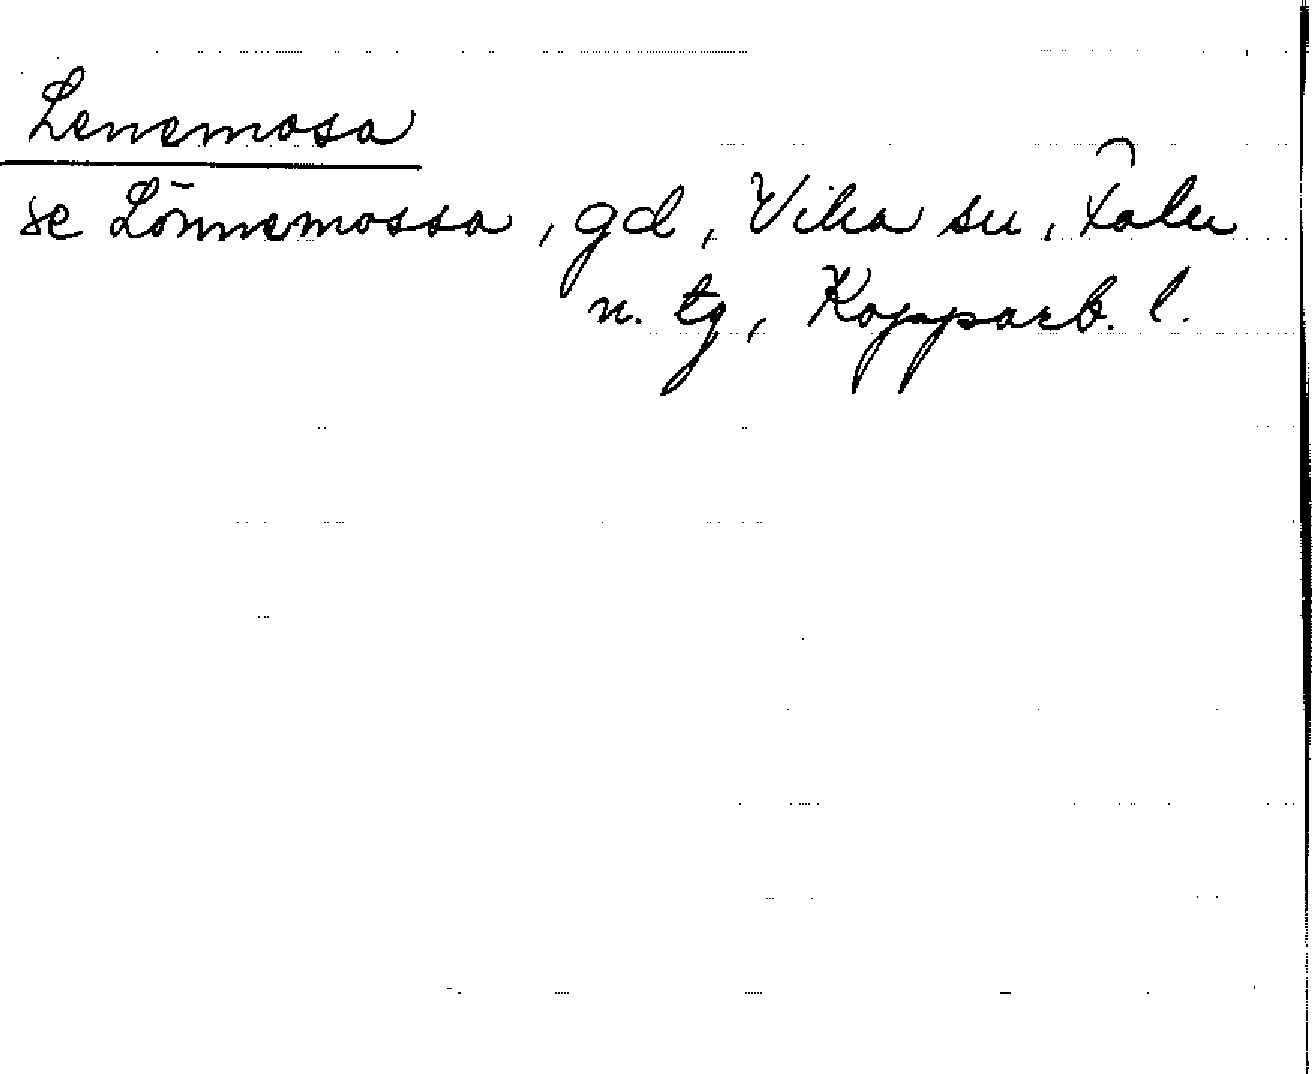 Lenemosa
se Lönnemossa, gd, Vika sn, Falu
n. tg, Kopparb. l.